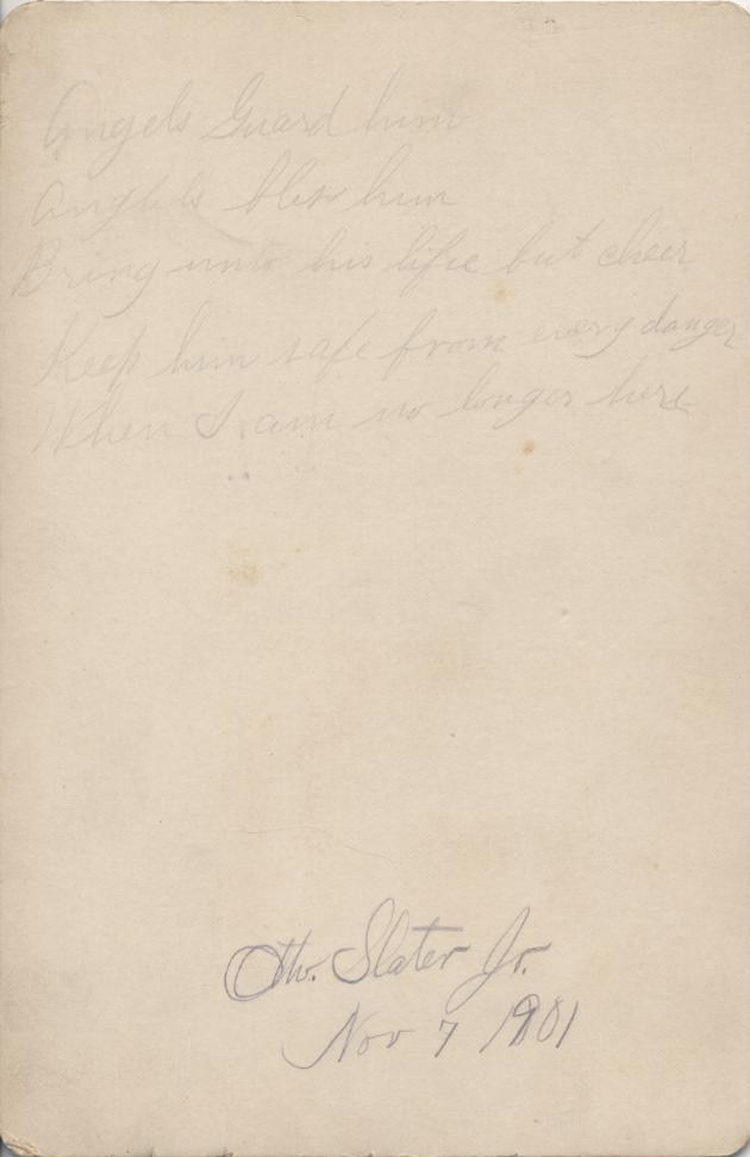 Angels Guard him
Angles bless him
Bring unto his life but cheer
Keep him safe from every danger
When I am no longer here
Slater Jr.
Nov 7 1901